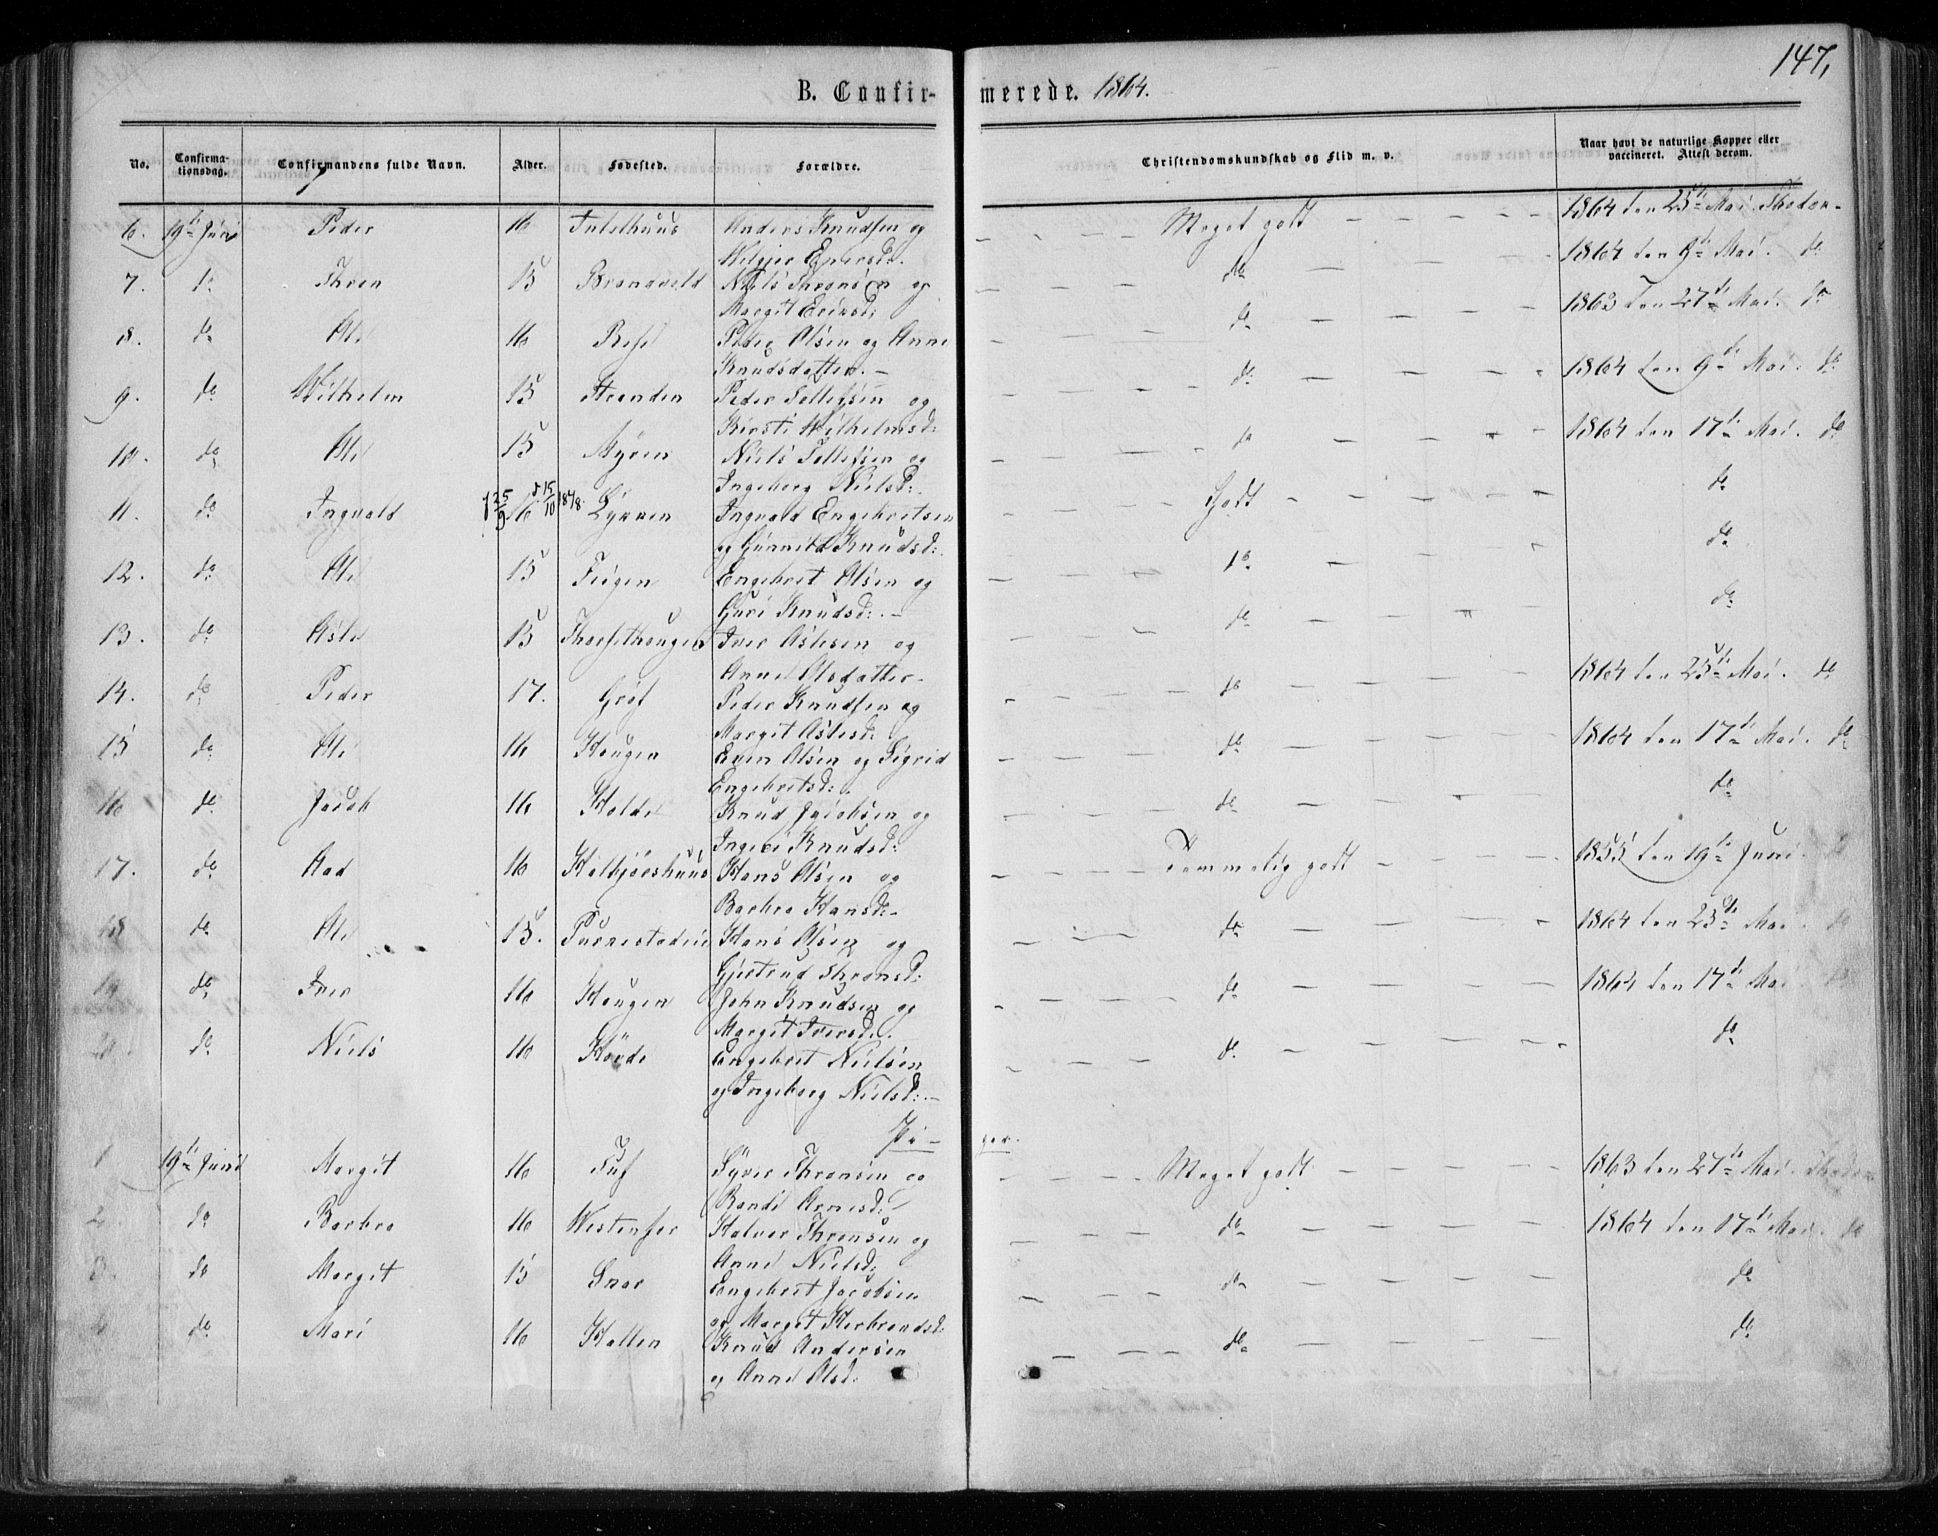 147,
B. Confir- merede. 1864.
No. Confirma-tionsdag. Confirmandens fulde Navn. Alder. Fødested. Forældre. Christendomskundskab og Flid m. v. Naar havt de naturlige Kopper eller vaccineret. Attest derom.
6. 19de Juni Peder 16 Anders Knudsen og Meget godt 1864 den 25de Mai.
7. do Thron 15 Niels Thronsen og do 1864 den 9de Mai. do
Margit
8. do Ole 16 Peder Olsen og Anne do 1863 den 27de Mai. do
Knudsdatter.
9. do Wilhelm 15 Stranden Peder Tollefsen og do 1864 den 9de Mai. do
Kirsti Wilhelmsd:
10. do Ole 15 Myren Niels Tollefsen og do 1864 den 17de Mai. do
Ingeborg Nielsd:
11. do Ingvald 16 Ingvald Engebretsen Godt do
og Gunnild Knudsd:
12. do Ole 15 Engebret Olsen og do do
Guri Knudsd:
13. do Asle 15 Iver Aslesen og do do
Anne Olsdatter
14. do Peder 17. Grøf Peder Knudsen og do 1864 den 25de Mai. do
Margit Aslesd:
15 do Ole 16 Haugen Even Olsen og Sigrid do 1864 den 17de Mai. do
Engebretsd:
16 do Jacob 16 Knud Jacobsen og do do
Knudsd:
17. do Aad 16 Hans Olsen og Temmelig godt 1855 den 19de Juni. do
Barbro Hansd:
18 do Ole 15. Hans Olsen og do 1864 den 25de Mai do
Gjertrud Thronsd:
19 do Iver 16 Haugen John Knudsen og do 1864 den 17de Mai do
Margit Iversd.
20 do Niels 16 Engebret Nielsen do do
og Ingeborg Nielsd:
Pi- ger.
1 19de Juni Margit 16 Tuf Syver Thronsen og Meget godt 1863 den 27de Mai.
Randi Arnesd:
2. do Barbro 16 Halvor Thronsen og do 1864 den 17de Mai. do
Anne Nielsd:
3. do Margit 15 Engebret Jacobsen do do
og Margit Herbrandsd:
4 do Mari 16 Knud Andersen do do
og Anne Olsd: